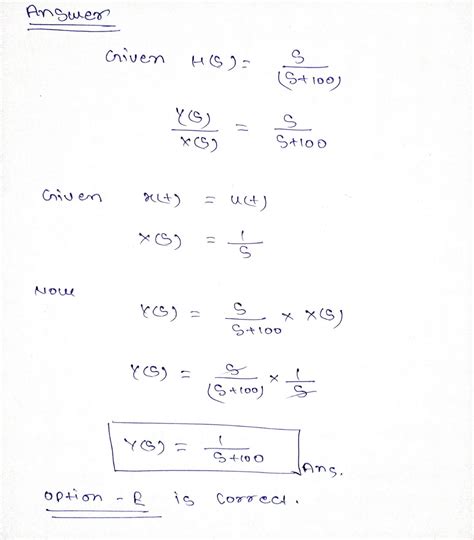 Answer
Given H(S) = S/(S+100)
Y(S)/X(S) = S/S+100
Given x(t) = u(t)
X(S) = 1/S
Now
Y(S) = S/S+100 × X(S)
Y(S) = S/(S+100) × 1/S
Y(S) = 1/S+100 Ans.
option - E is correct.